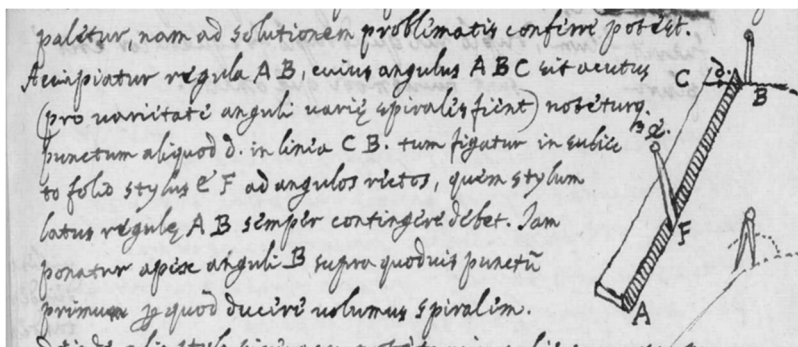 paletur, nam ad solutionem problematis conferre potest.
Accipiatur regula AB, cuius angulus ABC sit acutus
(pro varietate anguli varię spirales fient) noteturq.
punctum aliquod d. in linea CB. tum figatur in subiec
to folio stylus e F ad angulos rectos, quem stylum
latus regulę AB semper contingere debet. Iam
ponatur apex anguli B supra quoduis punctū
primum quod ducere uolumus spiralem.
C
d.
B
e.
F
A